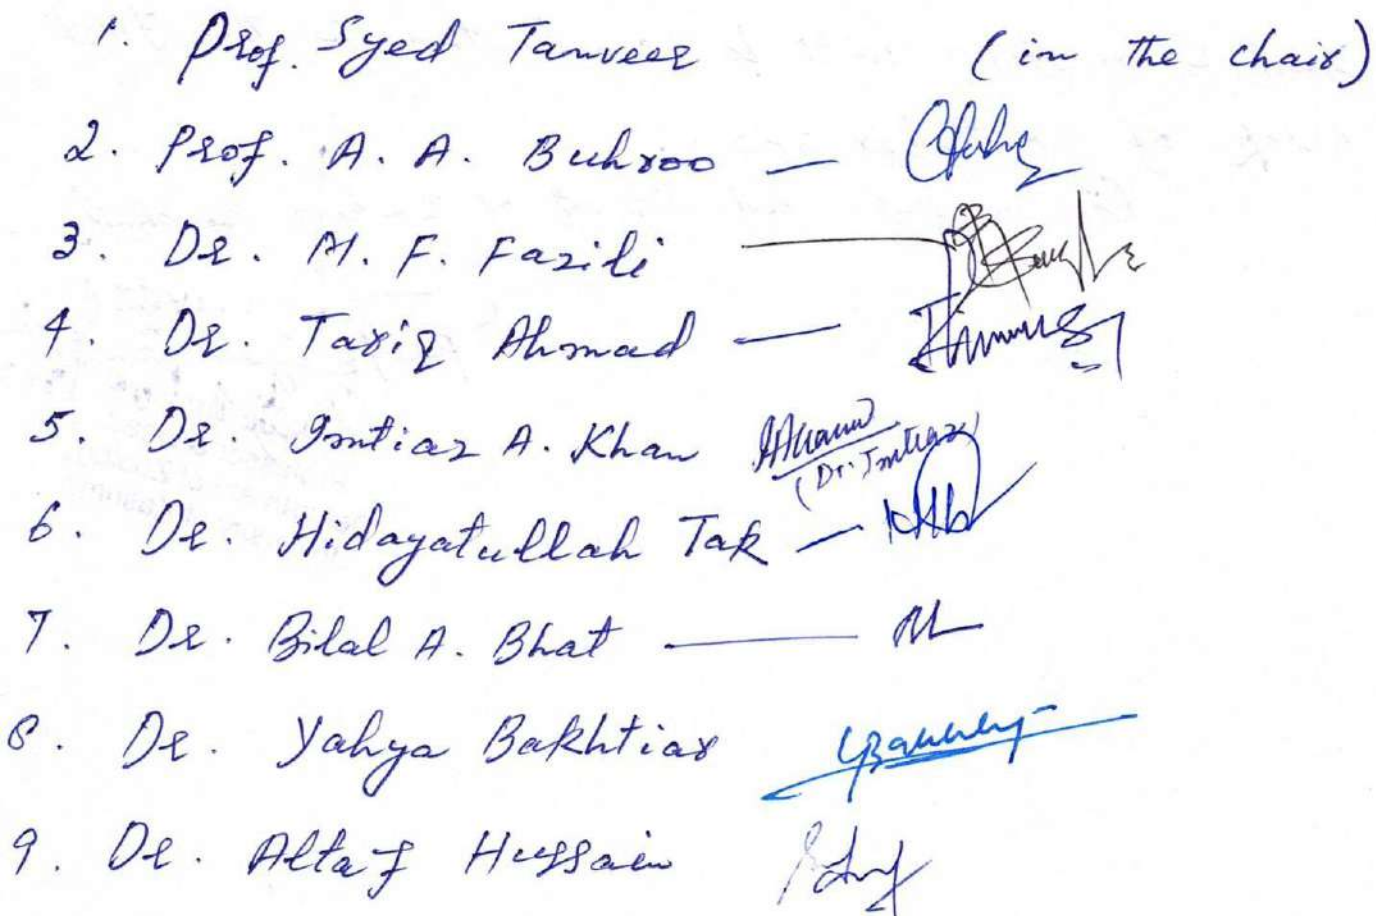 1. Prof. Syed Tanveer (in the chair)
2. Prof. A. A. Buhroo —
3. Dr. M. F. Fazili —
4. Dr. Tariq Ahmad —
5. Dr. Imtiaz A. Khan
(Dr. Imtiaz)
6. Dr. Hidayatullah Tak —
7. Dr. Bilal A. Bhat —
8. Dr. Yahya Bakhtiar
9. Dr. Altaf Hussain